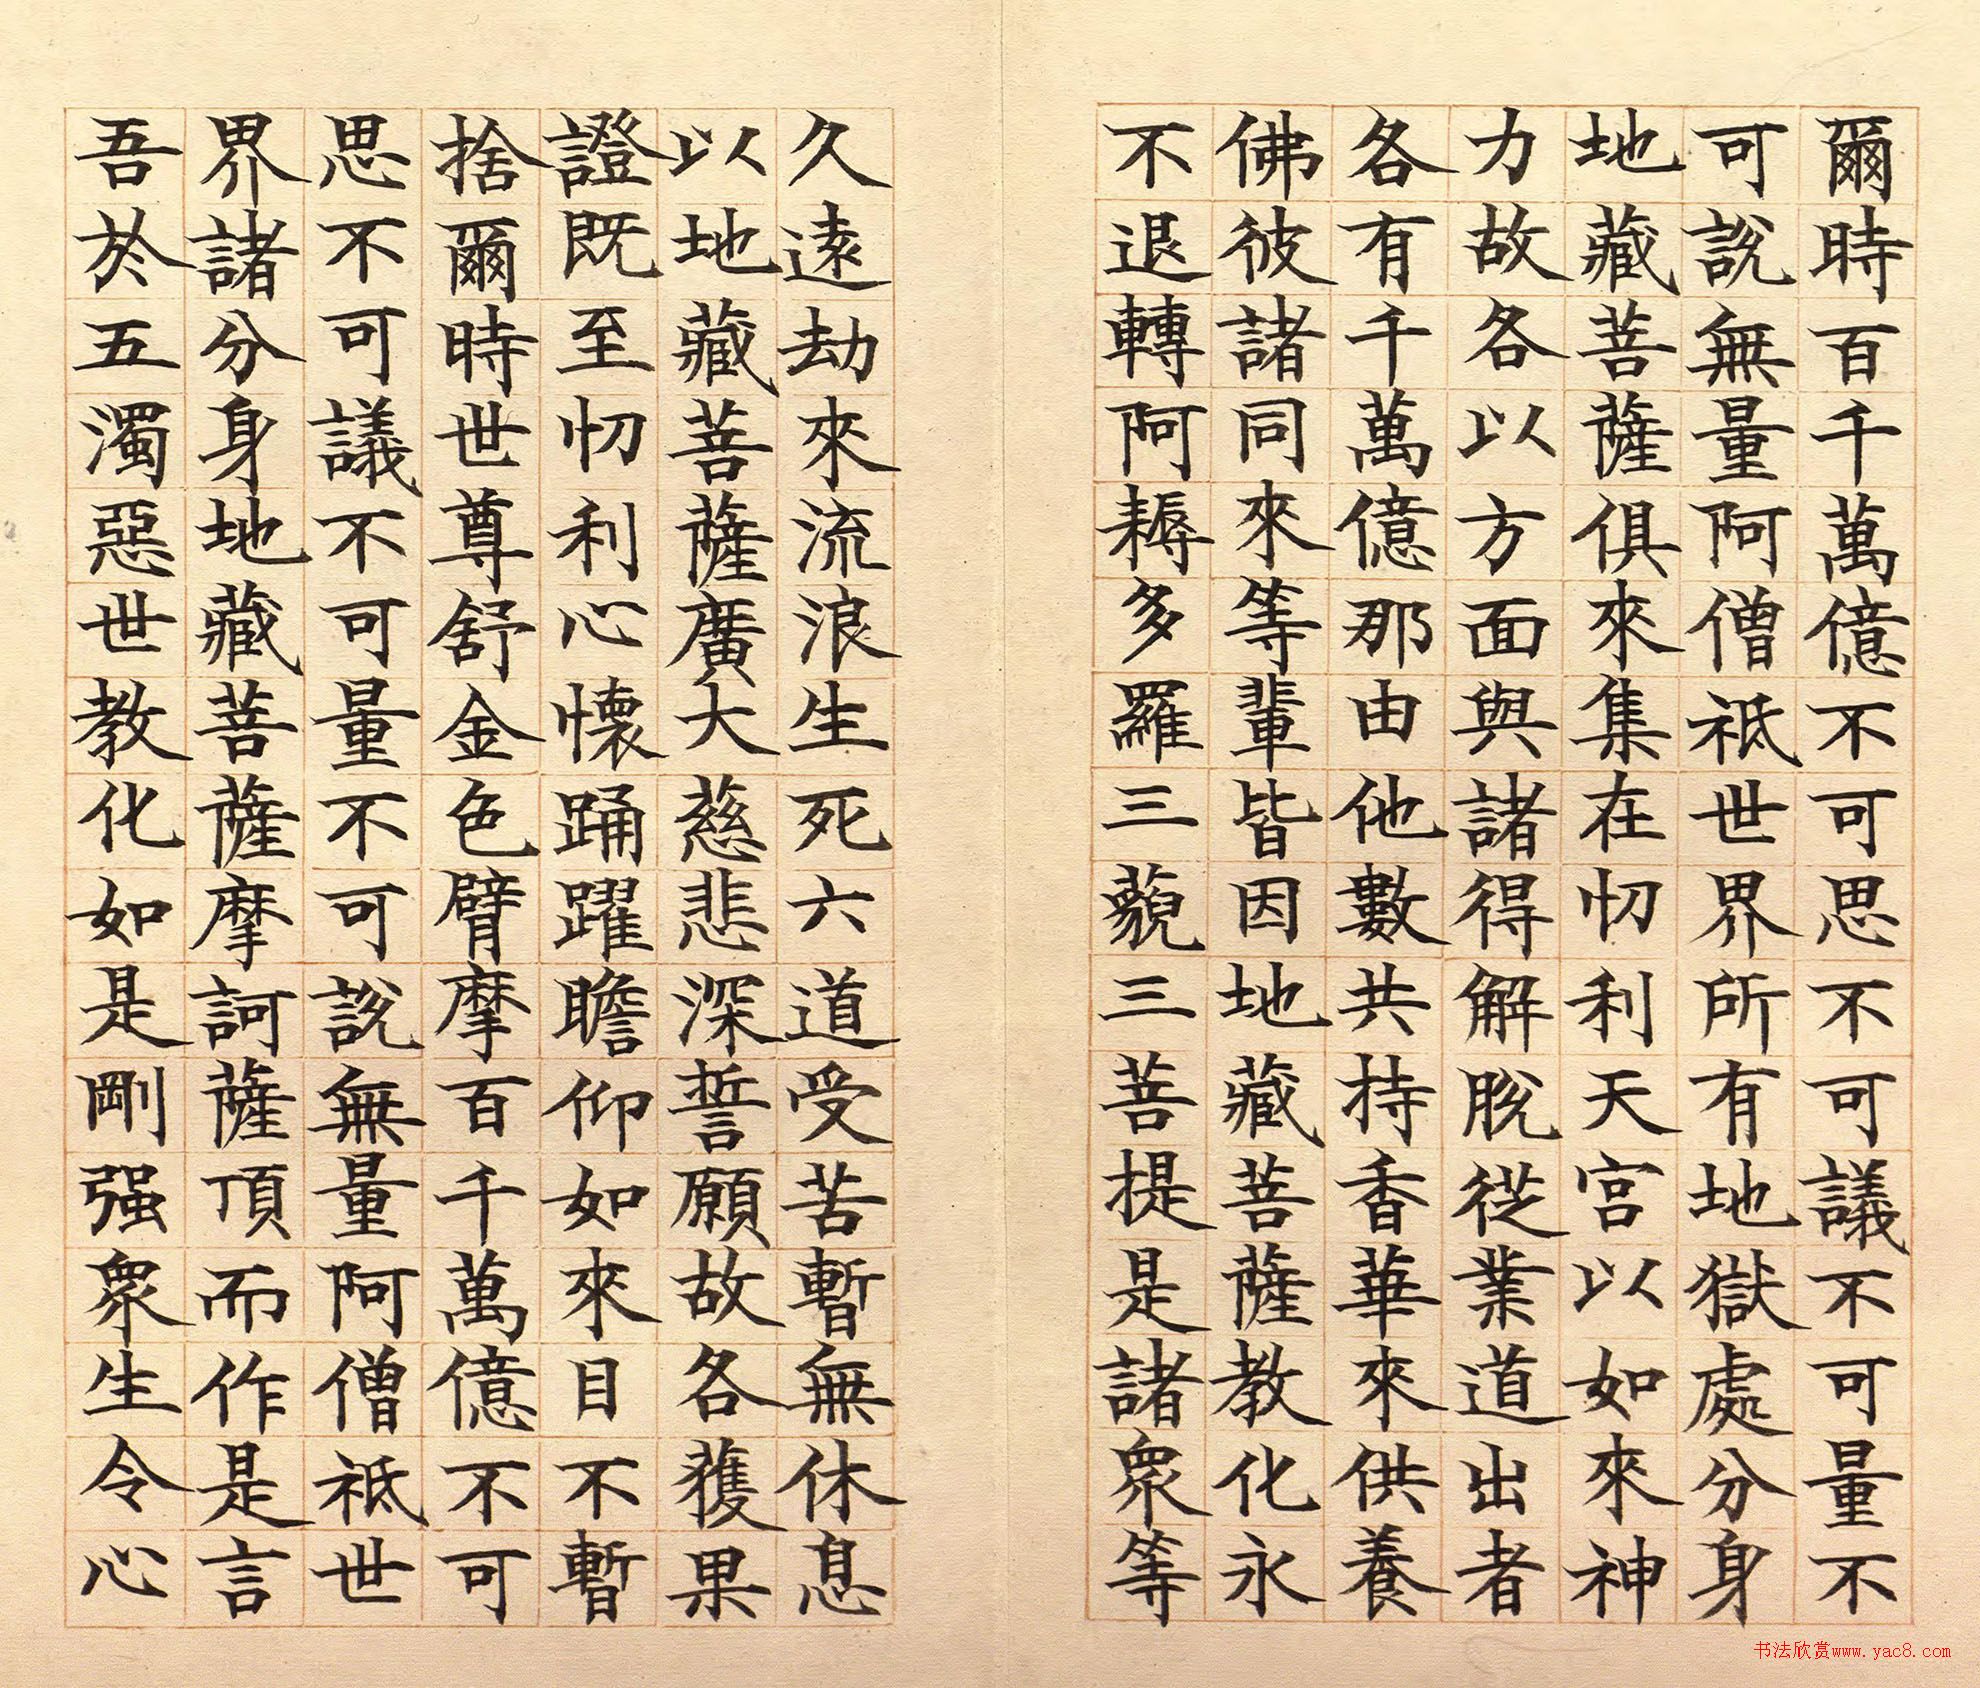 爾時百千萬億不可思不可議不可量不
可說無量阿僧祇世界所有地獄處分身
地藏菩薩俱來集在忉利天宮以如來神
力故各以方面與諸得解脫從業道出者
各有千萬億那由他數共持香華來供養
佛彼諸同來等輩皆因地藏菩薩教化永
不退轉阿耨多羅三藐三菩提是諸眾等
久遠劫來流浪生死六道受苦暫無休息
以地藏菩薩廣大慈悲深誓願故各獲果
證既至忉利心懷踊躍瞻仰如來目不暫
捨爾時世尊舒金色臂摩百千萬億不可
思不可議不可量不可說無量阿僧祇世
界諸分身地藏菩薩摩訶薩頂而作是言
吾於五濁惡世教化如是剛强眾生令心
书法欣赏www.yac8.com